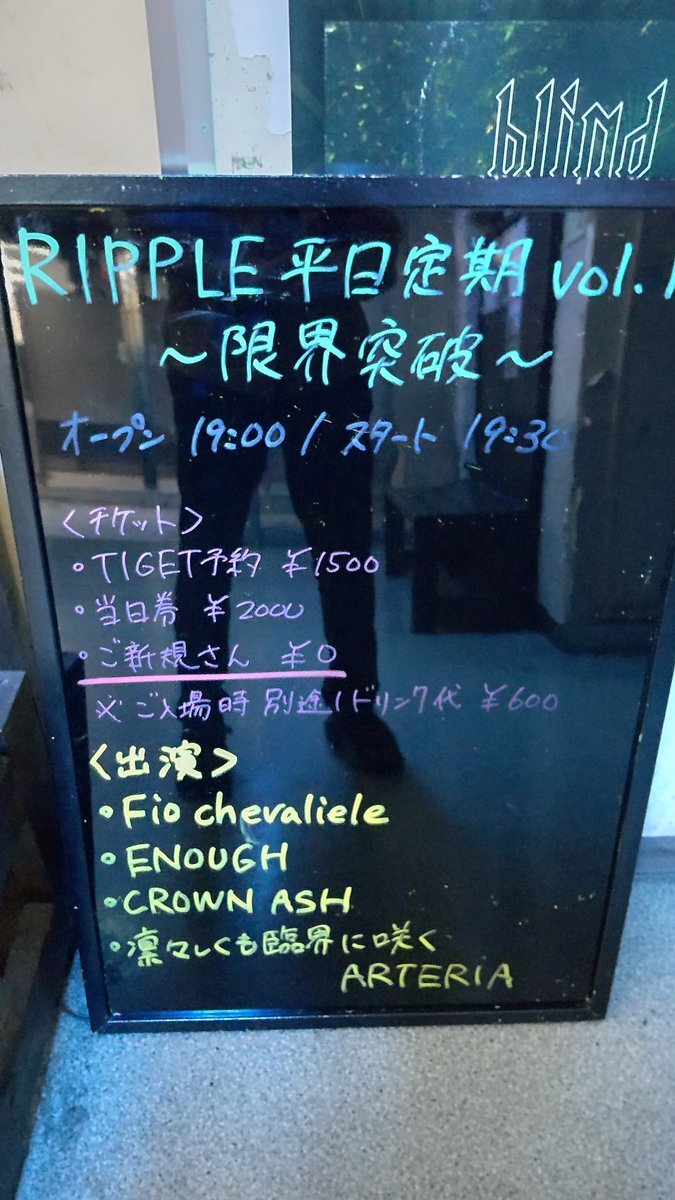 blind
RIPPLE 平日定期 vol.1
～限界突破～
オープン 19:00 / スタート 19:30
<チケット>
・TIGET予約 ¥1500
・当日券 ¥2000
・ご新規さん ¥0
※ご入場時 別途1ドリンク代 ¥600
<出演>
・Fio chevaliele
・ENOUGH
・CROWN ASH
・凛々しくも臨界に咲く
ARTERIA